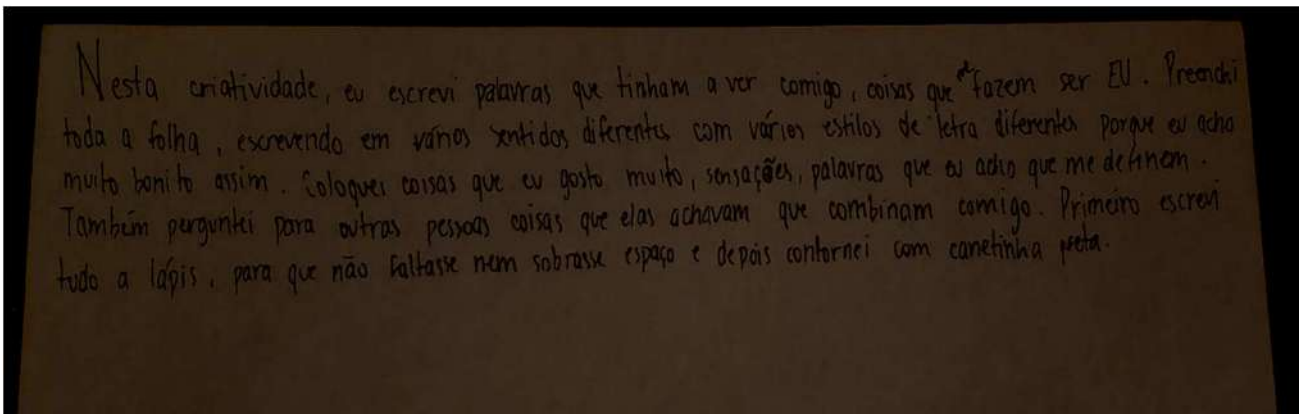 Nesta criatividade, eu escrevi palavras que tinham a ver comigo, coisas que me fazem ser EU. Preenchi
toda a folha, escrevendo em vários sentidos diferentes com vários estilos de letra diferentes porque eu acho
muito bonito assim. Coloquei coisas que eu gosto muito, sensações, palavras que eu acho que me definem.
Também perguntei para outras pessoas coisas que elas achavam que combinam comigo. Primeiro escrevi
tudo a lápis, para que não faltasse nem sobrasse espaço e depois contornei com canetinha preta.